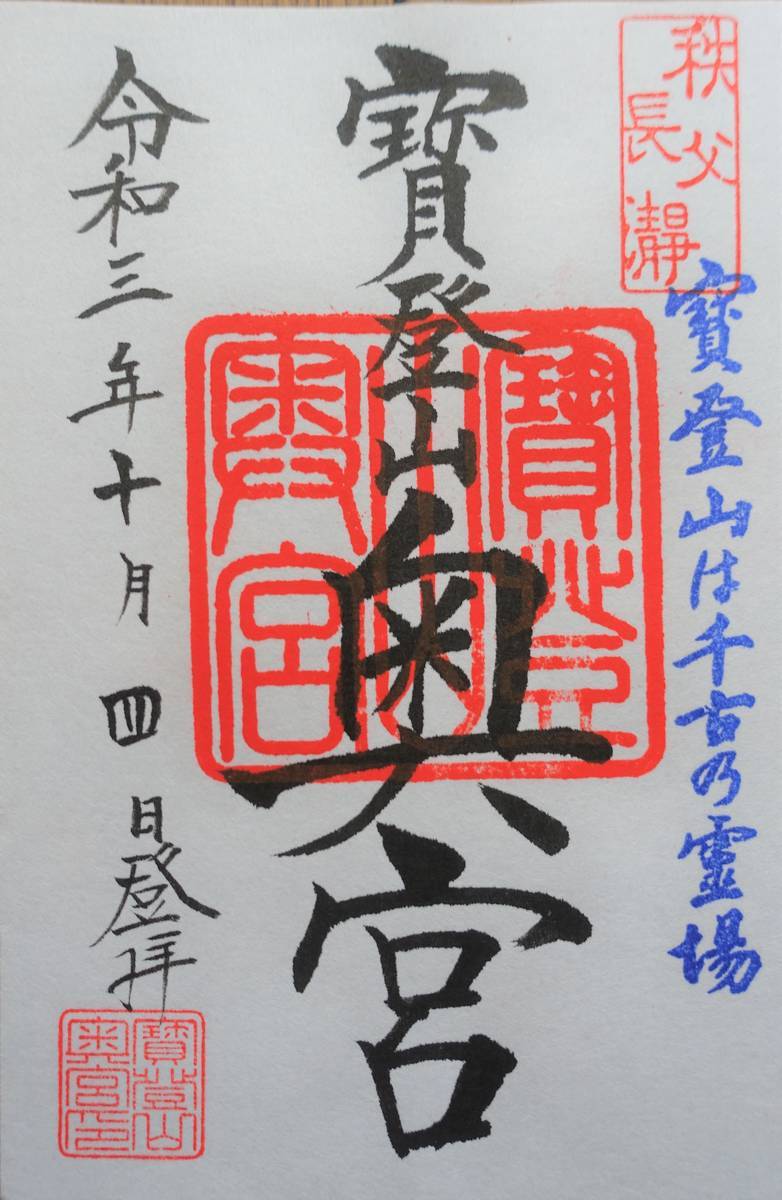 秩父
長瀞
寶登山は千古乃霊場
寶登山奥宮
寶登山奥宮
令和三年十月四日登拝
寶登山
奥宮印